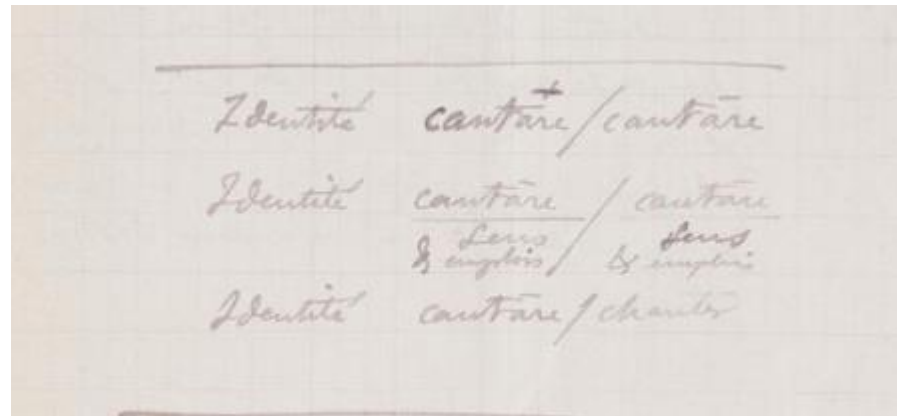 Identité cantāre / cantāre
Identité cantāre / cantāre
Sens / Sens
& emplois & emplois
Identité cantāre / chanter